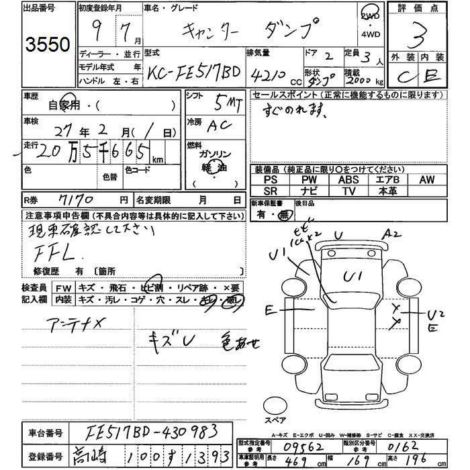 出品番号
3550
初度登録年月
9年 7月
ディーラー・並行
モデル年式 年
ハンドル 左・右
車名・グレード
キャンター ダンプ
2WD
・4WD
評価点
3
外装 内装
C E
型式
KC-FE517BD
排気量
4210 CC
ドア
2
形状
ダンプ
定員
3人
積載
2000kg
車歴
自家用・( )
車検
27年2月( )日
走行
20万5千665km
色 色替 色コード
シフト
5MT
冷房
AC
燃料
ガソリン
軽油
セールスポイント(正常に機能するものに限ります)
すぐのれます。
装備品(純正品に限り○をつけてください)
PS PW ABS エアB AW
SR ナビ TV 本革
R券 7170 名変期限 月 日
新車保証書
有・無
後日品
注意事項申告欄(不具合内容等は具体的に記入して下さい)
現車確認して下さい
FFL.
修復歴 有(箇所 )
検査員
記入欄
FW キズ・飛石・ヒビ割・リペア跡・×要
内装 キズ・汚レ・コゲ・穴・スレ
アンテナX
キズU 色あせ
U A2
U1 U1
E U2
E
X
X
スペア
A-キズ E-エクボ U-凹み W-補修跡 S-サビ C-腐食 XX-交換済
車台番号 FE517BD-430983
登録番号 高崎 100す1393
型式指定番号 09562 類別区分番号 0162
車両証明用 長さ 469cm 幅 169cm 高さ 196cm